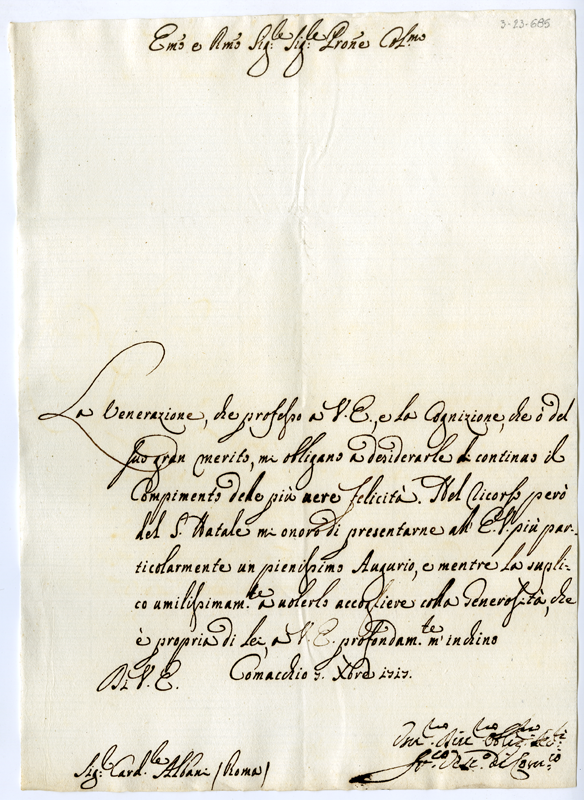 3-23-685
Em.o e Rm.o Sig.le Sig.le Prone Col.mo
La Venerazione, che professo a V. E., e la Cognizione, che ò del
suo gran merito, mi obligano a desiderarle di continuo il
Compimento delle più uere felicità. Nel Ricorso però
del S. Natale mi onorò di presentarne all' E. V. più par-
ticolarmente un pienissimo Augurio, e mentre la supli-
co umilissimam.te a uolerlo accogliere colla Generosità, che
è propria di lei, a V. E. profondam.te m' inchino
Di V. E. Comacchio 9. Xbre 1717.
Sig.r Card.le Albani (Roma)